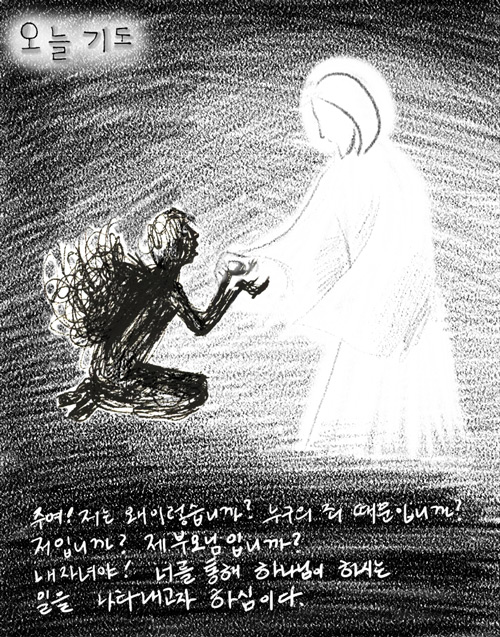 오늘 기도
주여! 저는 왜 이렇습니까? 누구의 죄 때문입니까?
저입니까? 제 부모님입니까?
내 자녀야! 너를 통해 하나님이 하시는
일을 나타내고자 하심이다.